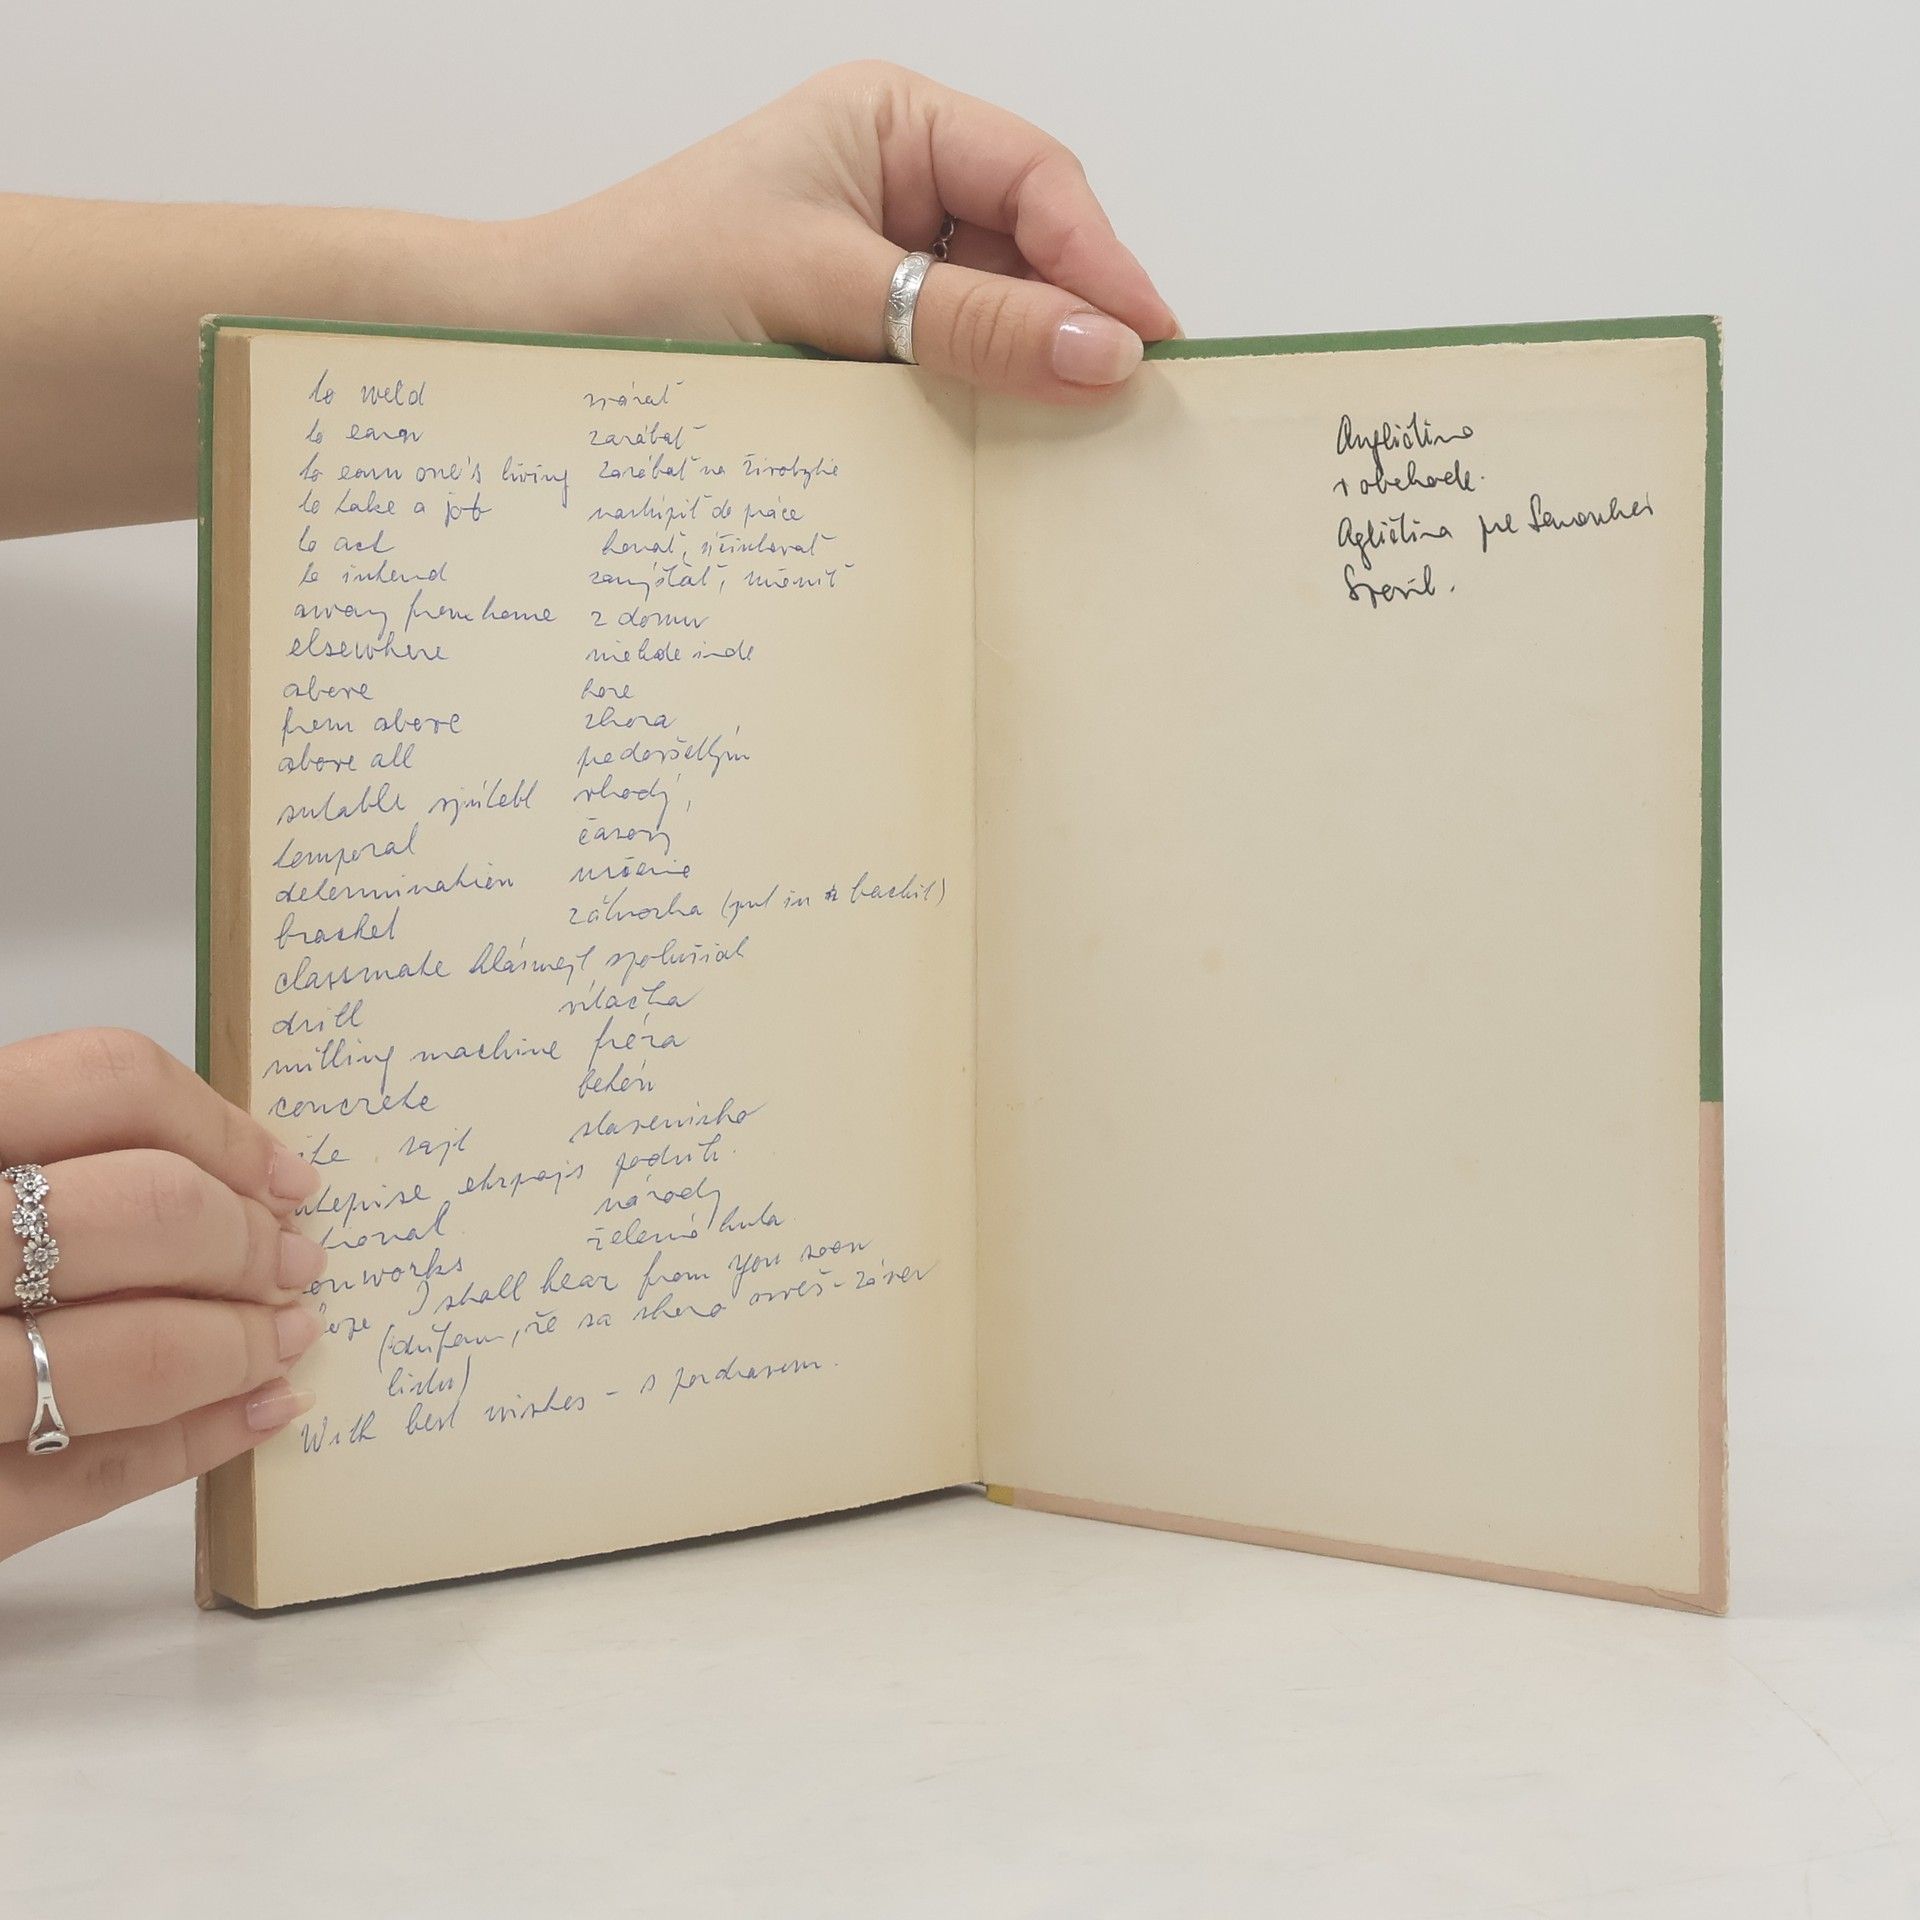 to weld zvárať
to earn zarábať
to earn one's living zarábať na živobytie
to take a job nastúpiť do práce
to act konať, účinkovať
to intend zamýšľať, mieniť
away from home z domu
elsewhere niekde inde
above hore
from above zhora
above all predovšetkým
sutable sjútebl vhodý,
temporal časový
determination určenie
bracket zátvorka (put in backit)
classmate klásmejt spolužiak
drill vŕtačka
milling machine fréza
concrete betón
ite sajt stavenisko
podnik.
tional národy
onworks železná huta
I shall hear from you soon
(dúfam, že sa skoro ozveš - záver
listu)
With best wishes - s pozdravom.
Angličtina
v obchode.
Agličtina pre Samoukov